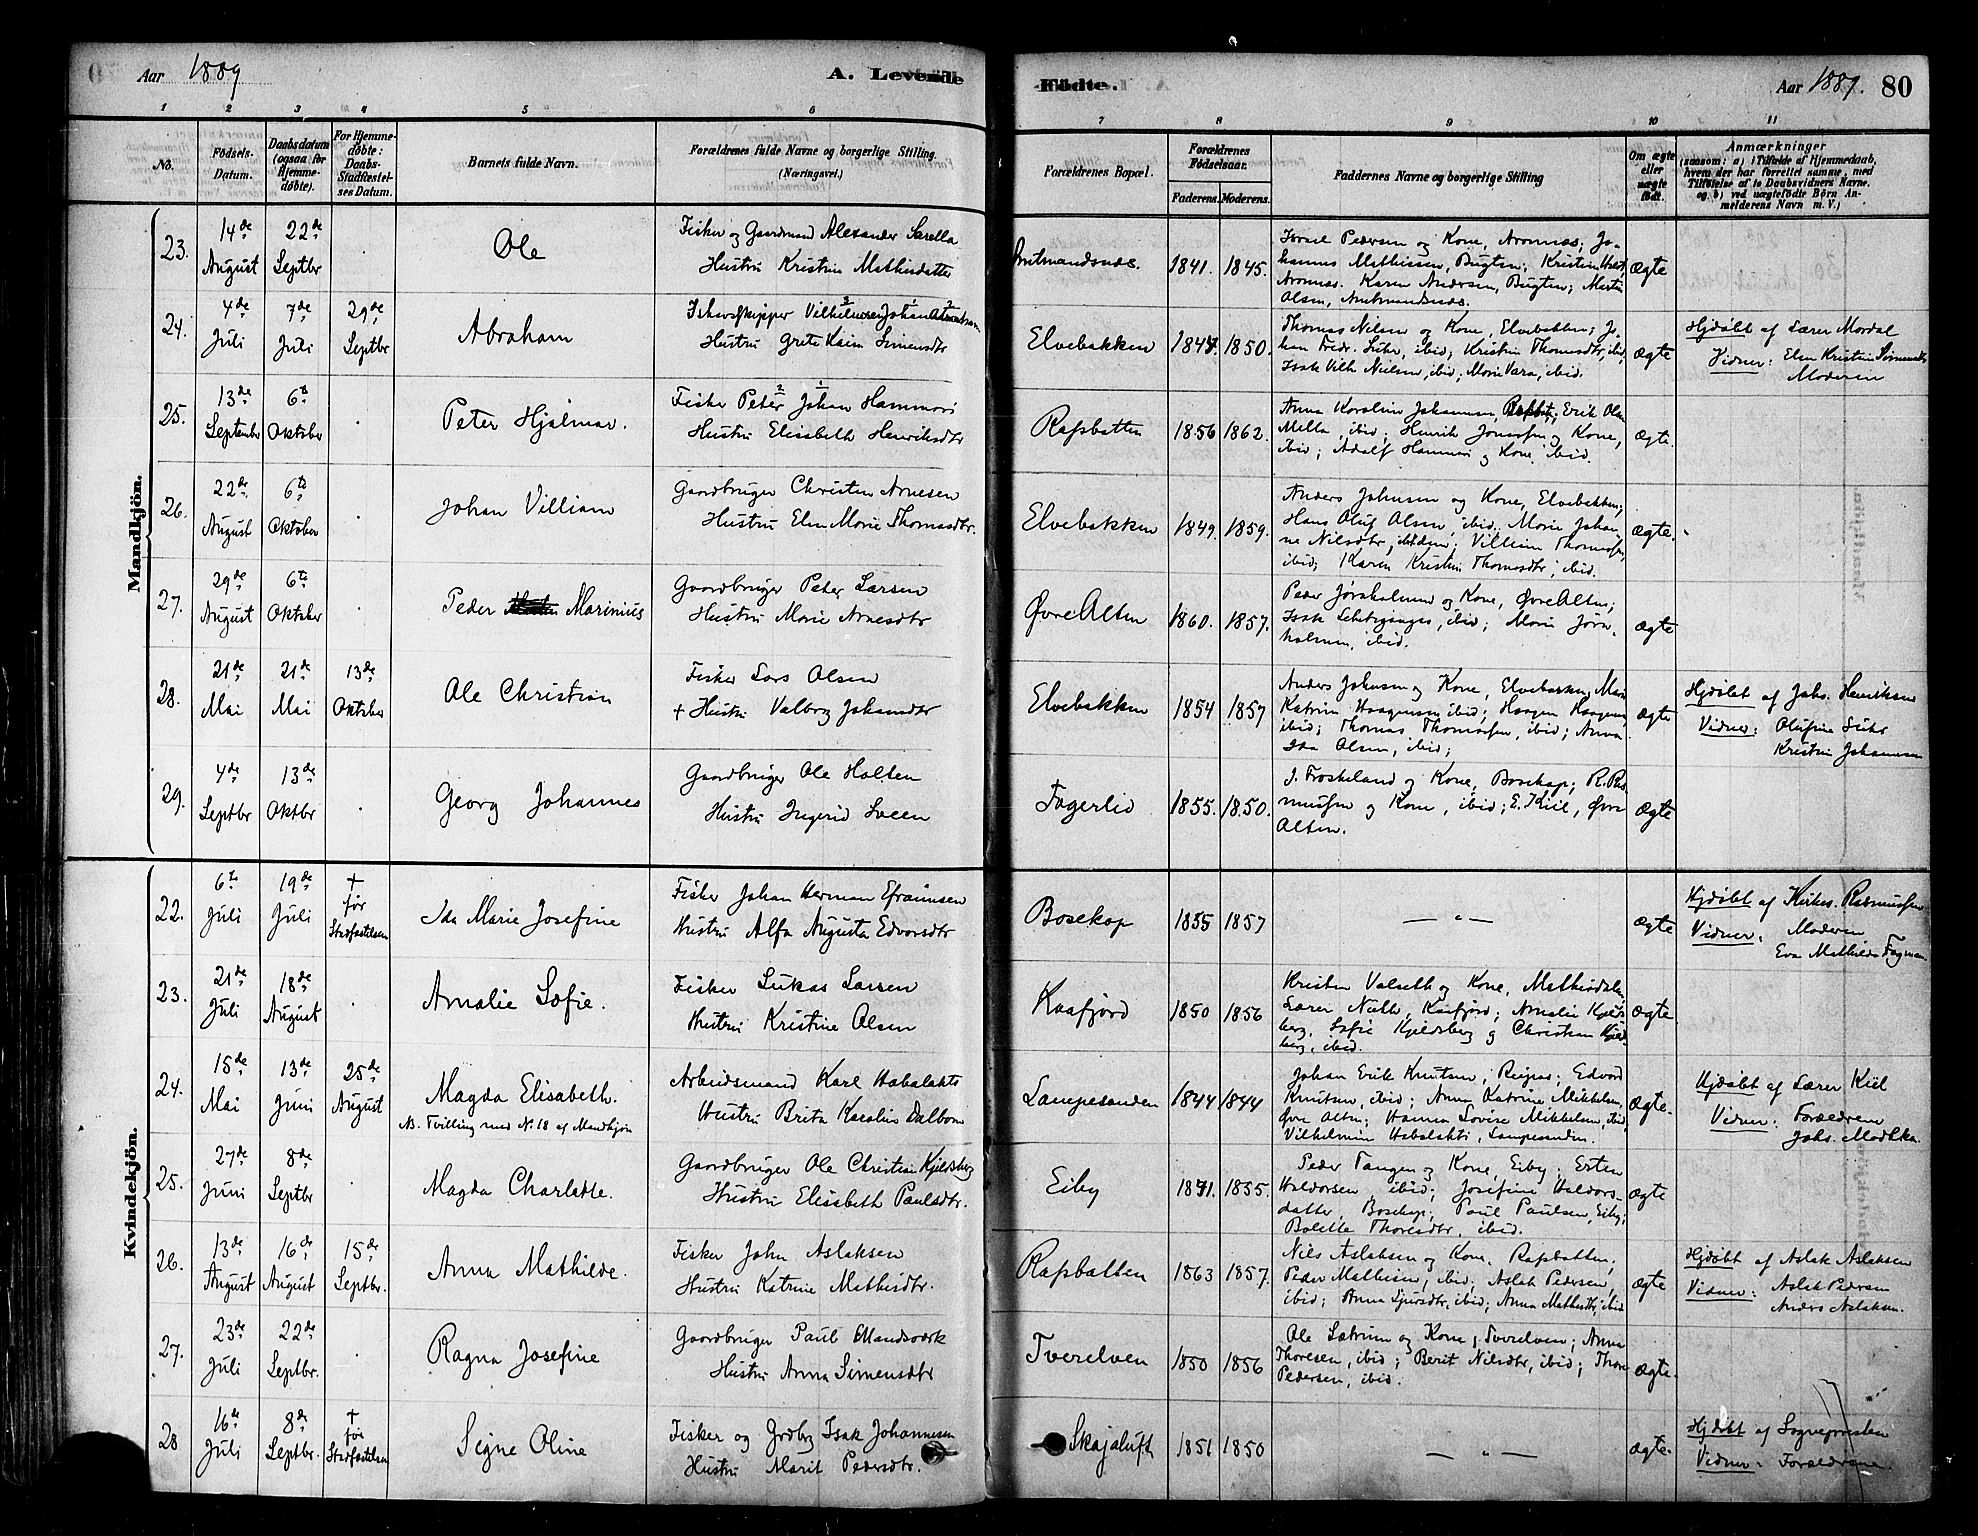 Aar 1889
A. Levende
Födte.
Aar 1889.
80
1 2 3 4 5 6 7 8 9 10 11
No.
Fødsels-Datum.
Daabsdatum (ogsaa for Hjemmedøbte).
For Hjemmedøbte: Daabs-Stadfæstelses Datum.
Barnets fulde Navn.
Forældrenes fulde Navne og borgerlige Stilling. (Næringsvei.)
Forældrenes Bopæl.
Forældrenes Fødselsaar.
Faderens. Moderens.
Faddernes Navne og borgerlige Stilling
Om ægte eller uægte født.
Anmærkninger
(saasom: a) i Tilfælde af Hjemmedaab, hvem der har forrettet samme, med Tilføielse af to Daabsvidners Navne. og b) ved uægtefødte Börn Anmelderens Navn m. V.)
Mandkjön.
23. 14de August 22de Septbr . Ole
Fisker og Gaardmand Alexander Sarella
Hustru Kristine Mathisdatter
Amtmandsnæs. 1841. 1845.
Israel Pedersen og Kone, Aronnæs; Johannes Mathissen, Bugten; Kristine Aronnæs. Karen Andersen, Bugten; Martin Olsen, Amtmandsnæs.
ægte
24. 4de Juli 7de Juli 29de Septbr Abraham
Ishavsskipper Vilhelmsen Johan Abraham
Hustru Grete Simensdtr
Elvebakken 1847. 1850.
Thomas Nilsen og Kone, Elvebakken; Johan Fredr. Suhr, ibid; Kristine Thomasdtr, ibid, Isak Vilh Nielsen, ibid; Marie Vara, ibid.
ægte
Hjdøbt af Lærer Mordal
Vidner: Elen Kristine Simensdtr
Moderen
25. 13de September 6te Oktober . Peter Hjalmar.
Fisker Peter Johan Hammari
Hustru Elisabeth Henriksdtr
Rafsbotten 1856 1862.
Anna Karoline Johansen Erik Olsen Mella, ibid; Henrik og Kone, ibid; Adolf Hammari og Kone, ibid.
ægte.
26. 22de August 6te Oktober . Johan Villiam
Gaardbruger Christen Arnesen
Hustru Elen Marie Thomasdtr.
Elvebakken 1849. 1859.
Anders Johnsen og Kone, Elvebakken; Hans Oluf Olsen, ibid. Marie Johanne Nilsdtr, ibidem; Villiam Thomassen, ibid; Karen Kristine Thomasdtr, ibid.
ægte.
27. 29de August 6te Oktober . Peder Marinius
Gaardbruger Peter Larsen
Hustru Marie Arnesdtr
Øvre Alten 1860. 1857.
Peder og Kone, Øvre Alten; Isak ibid; Marie ibid.
ægte
28. 21de Mai 21de Mai 13de Oktober Ole Christian
Fisker Lars Olsen
+ Hustru Valborg Johansdtr
Elvebakken 1854 1857
Anders Johnsen og Kone, Elvebakken, Marie Katrine Haagensen ibid; Haagen Haagensen, ibid; Thomas Thomassen, ibid; Anna Olsen, ibid;
ægte
Hjdøbt af Johs. Henriksen
Vidner: Olufine Suhr
Kristine Johannsen
29. 4de Septbr 13de Oktbr . Georg Johannes
Gaardbruger Ole Holten
Hustru Ingerid Sveen
Fagerlid 1855. 1850.
J. Froskeland og Kone, Bosekop; R. Rasmussen og Kone, ibid; E. Kiil, Øvre Alten.
ægte
Kvindekjön.
22. 6te Juli 19de Juli + før Stadfæstelsen Ida Marie Josefine
Fisker Johan Herman Efraimsen
Hustru Alfa Augusta Edvarsdtr
Bosekop 1855 1857
— " —
ægte
Hjdøbt af Kirkes. Rasmussen
Vidner: Moderen
Eva Mathilde Fagman.
23. 21de Juli 18de August . Amalie Sofie.
Fisker Lukas Larsen
Hustru Kristine Olsen
Kaafjord 1850 1856
Kristen Valseth og Kone, Mathisdalen, Lærer Kaafjord; Amalie Kjeldsberg, Sofie Kjeldsberg og Christian Kjeldsberg, ibid.
ægte.
24. 15de Mai 13de Juni 25de August Magda Elisabeth.
NB. Tvilling med No 18 af Mandkjøn
Arbeidsmand Karl Habalahti
Hustru Brita Karoline Dalbom
Lampesanden 1844 1844
Johan Erik Knutsen, Reipas; Edvard Knutsen, ibid; Anna Katrine Mikkelsen, Øvre Alten; Hanna Lovise Mikkelsen, ibid, Vilhelmine Habalahti, Lampesanden.
ægte.
Hjdøbt af Lærer Kiil
Vidner: Forældrene
Johs.
25. 27de Juni 8de Septbr . Magda Charlotte.
Gaardbruger Ole Christian Kjeldsberg
Hustru Elisabeth Paulsdtr.
Eiby 1831. 1835.
Peder Tangen og Kone, Eiby; Esten Haldorsen, ibid; Josefine Haldorsdatter, Bosekop; Paul Paulsen, Eiby; Bolette Thoresdtr, ibid.
ægte
26. 13de August 16de August 15de Septbr. Anna Mathilde.
Fisker John Aslaksen
Hustru Katrine Mathisdtr.
Rafsbotten 1863 1857.
Nils Aslaksen og Kone, Rafsbotten; Peder Mathisen, ibid; Aslak Pedersen, ibid; Anna ibid; Anna Mathisdtr, ibid
ægte
Hjdøbt af Aslak Aslaksen
Vidner: Aslak Pedersen
Anders Aslaksen.
27. 23de Juli 22de Septbr. . Ragna Josefine
Gaardbruger Paul Mandsværk
Hustru Anna Simensdtr
Tverelven 1850 1856
Ole Sætrum og Kone, Tverelven; Anna Thoresen, ibid; Berit Nilsdtr, ibid; Thore Pedersen, ibid.
ægte.
28 16de Juli 8de Septbr. + før Stadfæstelsen Signe Oline
Fisker og Grdbrg Isak Johannesen
Hustru Marit Pedersdtr.
Skajaluft 1851 1850
— " —
ægte.
Hjdøbt af Sognepresten
Vidner: Forældrene.